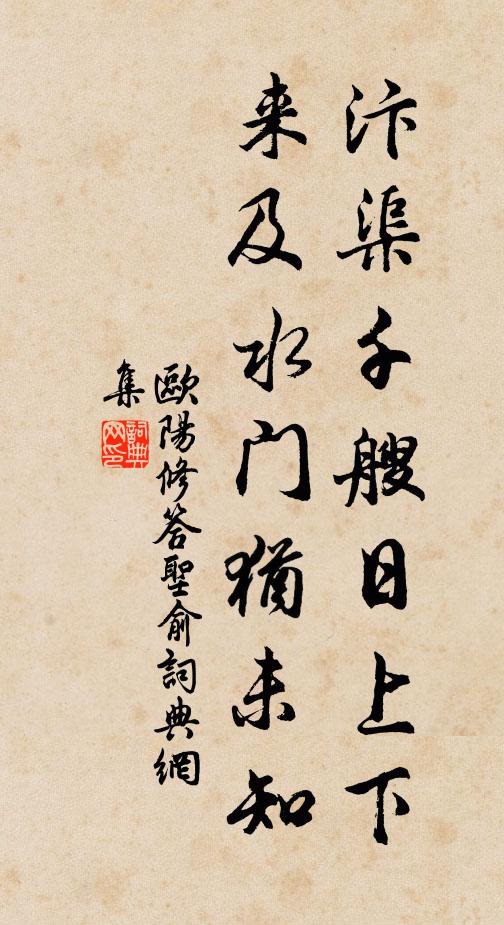 汴渠千艘日上下
来及水门猶未知
歐陽修答聖俞詞典網
集
詞典
网印